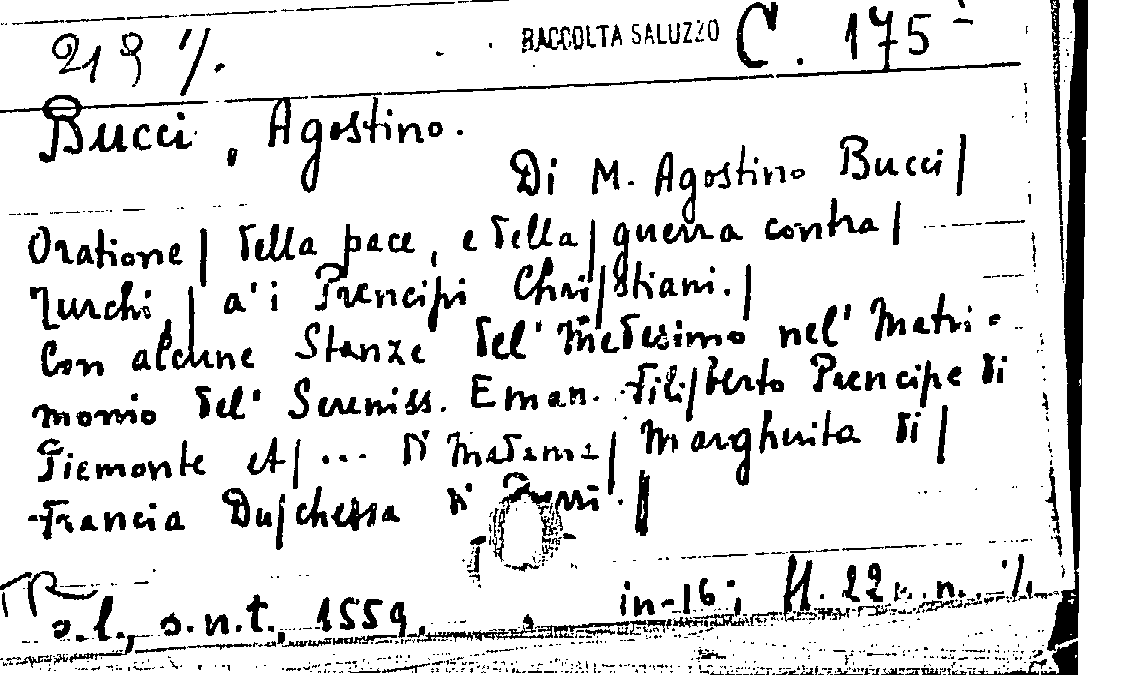 219 /. RACCOLTA SALUZZO C. 175 -
Bucci, Agostino.
Di M. Agostino Bucci|
Oratione| della pace, e della| guerra contra|
Turchi,| a' i Prencipi Chri|stiani.|
Con alcune Stanze del' Medesimo nel' Matri-
monio del' Sereniss. Eman. Fili|berto Prencipe di
Piemonte et| ... di Madama| Margherita di|
Francia Du|chessa di ||
s.l., s.n.t., 1559. in-16; ff. 22 n.n.